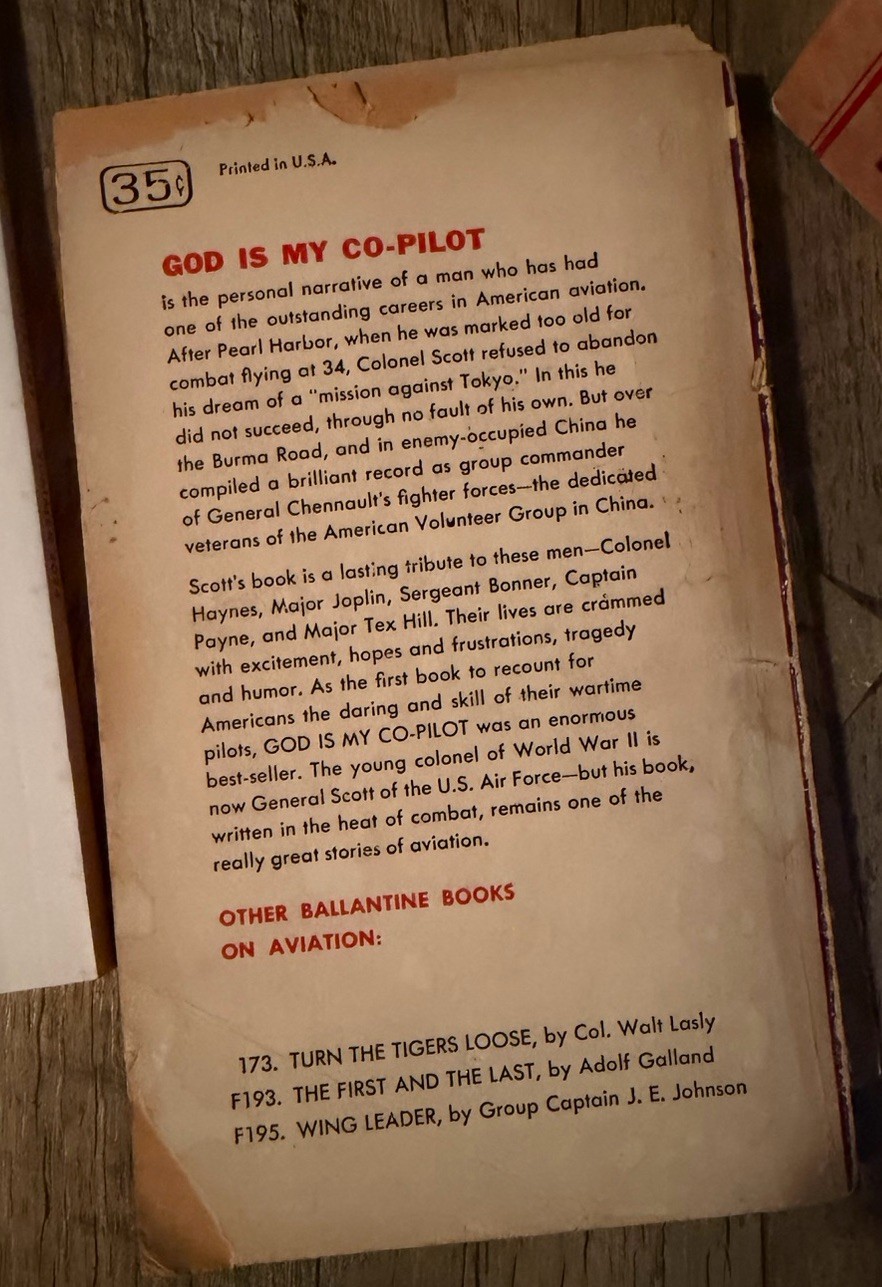 35¢ Printed in U.S.A.
GOD IS MY CO-PILOT
is the personal narrative of a man who has had
one of the outstanding careers in American aviation.
After Pearl Harbor, when he was marked too old for
combat flying at 34, Colonel Scott refused to abandon
his dream of a "mission against Tokyo." In this he
did not succeed, through no fault of his own. But over
the Burma Road, and in enemy-occupied China he
compiled a brilliant record as group commander
of General Chennault's fighter forces—the dedicated
veterans of the American Volunteer Group in China.
Scott's book is a lasting tribute to these men—Colonel
Haynes, Major Joplin, Sergeant Bonner, Captain
Payne, and Major Tex Hill. Their lives are crammed
with excitement, hopes and frustrations, tragedy
and humor. As the first book to recount for
Americans the daring and skill of their wartime
pilots, GOD IS MY CO-PILOT was an enormous
best-seller. The young colonel of World War II is
now General Scott of the U.S. Air Force—but his book,
written in the heat of combat, remains one of the
really great stories of aviation.
OTHER BALLANTINE BOOKS
ON AVIATION:
173. TURN THE TIGERS LOOSE, by Col. Walt Lasly
F193. THE FIRST AND THE LAST, by Adolf Galland
F195. WING LEADER, by Group Captain J. E. Johnson